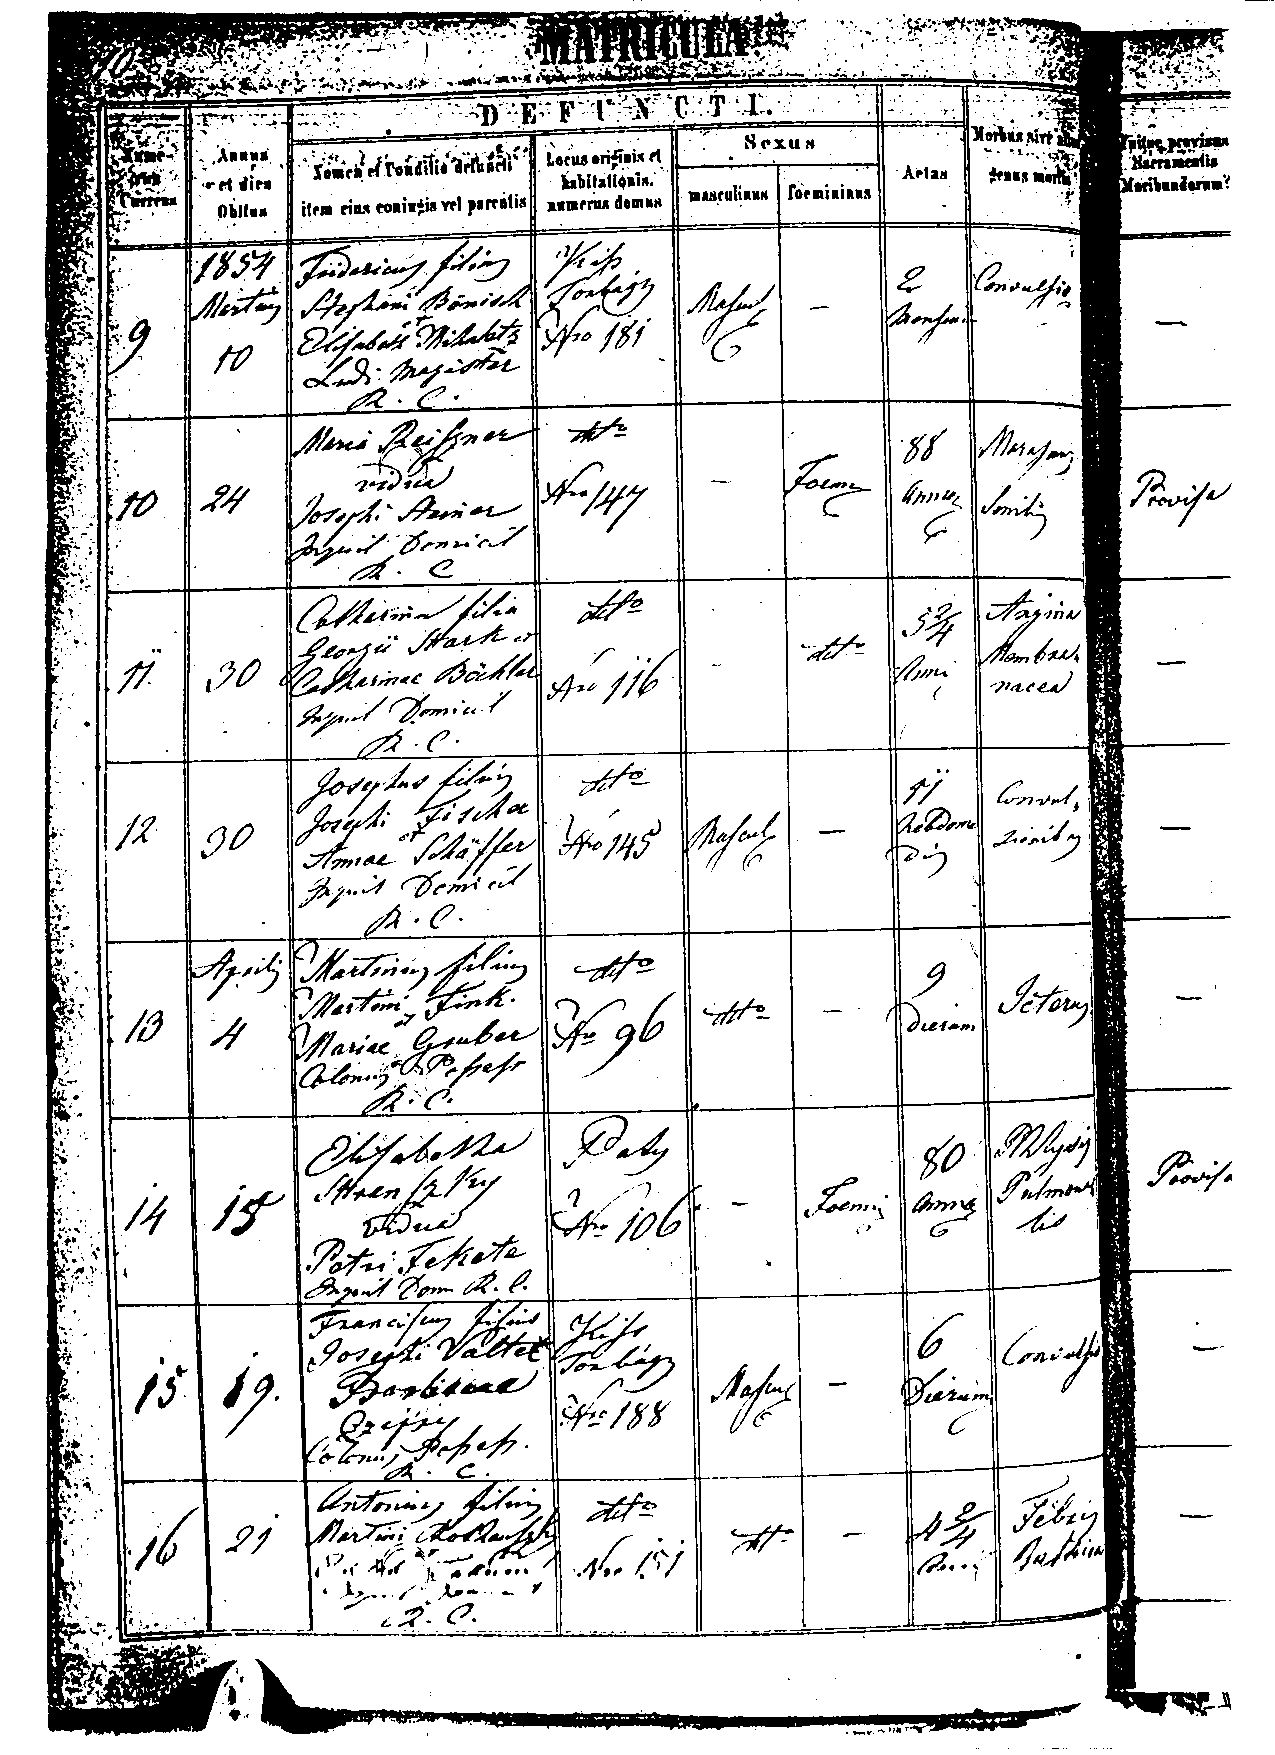 10
MATRICULA
DEFUNCTI.
Numerus Currens
Annus et dies Obitus
Nomen et Conditio defuncti item eius coniugis vel parentis
Locus originis et habitationis, numerus domus
Sexus
masculinus
foemininus
Aetas
Morbus sive
genus mortis
provisus Sacramentis Moribundorum?
9
1854
Martius
10
Fridericus filius
Stephani Bömisch
et
Ludi Magister
R. C.
Kiss
Torbágy
Nro 181
Mascul
—
2
Convulsio
—
10
24
Maria Reiszner
vidua
Josephi
Inquil Domicil
R. C
ditto
Nro 147
—
Foem
88
Annor
Senilis
Provisa
11
30
Catharina filia
Georgii Stark et
Catharinae Bächler
Inquil Domicil
R. C.
ditto
Nro 116
—
ditto
5 2/4
Anni
Angina
Membra
nacea
—
12
30
Josephus filius
Josephi Fischer
et
Annae Schäffer
Inquil Domicil
R. C.
ditto
Nro 145
Mascul
—
11
Hebdoma
dis
Convul
sionibus
—
13
Aprilis
4
Martinus filius
Martini Fink.
et
Mariae Gruber
Colonus Possess
R. C.
ditto
Nro 96
ditto
—
9
Dierum
Icterus
—
14
15
Elisabetha
vidua
Petri Fekete
Inquil Dom R. C.
Paty
Nro 106
—
Foemi
80
Annor
Phtysis
Pulmona
lis
Provisa
15
19.
Franciscus filius
Josephi Valter
Barbarae
Colonus Possess.
R. C.
Kiss
Torbágy
Nro 188
Mascul
—
6
Dierum
Convulsio
—
16
21
Antonius filius
Martini
R. C.
ditto
Nro 151
ditto
—
4 2/4
Anni
Febris
—